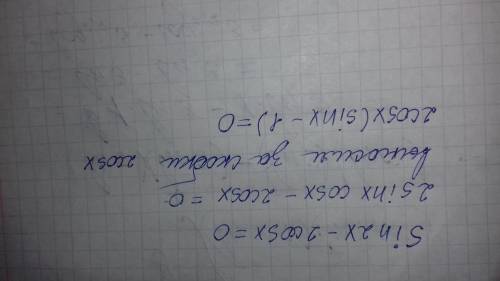 sin2x - 2cosx = 0
2sinx cosx - 2cosx = 0
выносим за скобки 2cosx
2cosx(sinx - 1) = 0